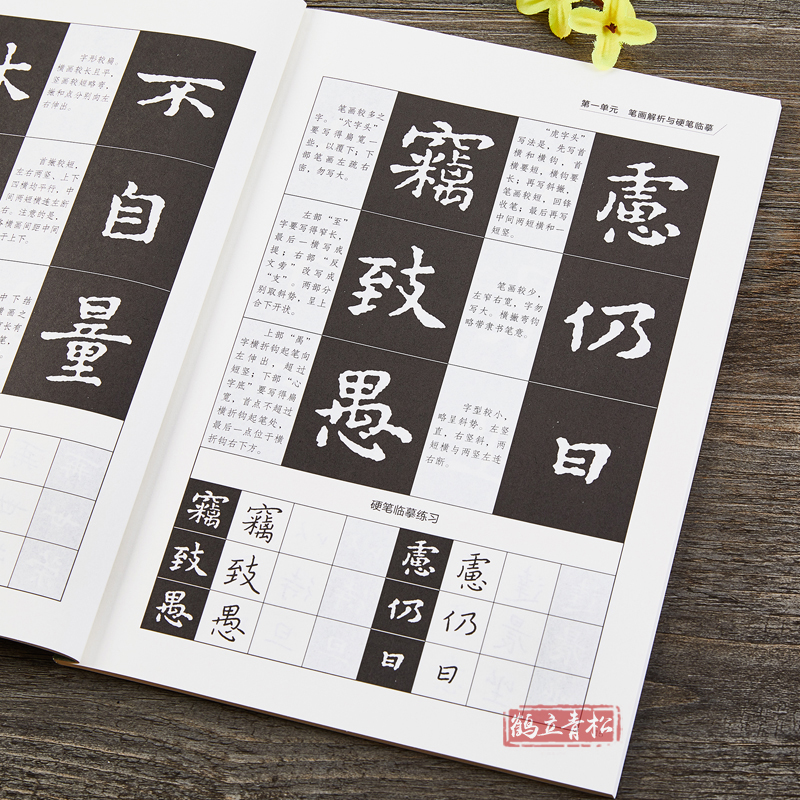 字形较扁。
横画较长且平，
竖画较短略弯，
撇和点分别向左
右伸出。
不
首撇较短，
左右两竖，上下
四横均平行，中
间两短横连左断
右。注意的是，
横画间距中间
于上下。
自
中下结
横画之
长有
笔，
量
第一单元 笔画解析与硬笔临摹
慮
“虎字头”
写法是，先写首
横和横钩，首
横要短，横钩要
长；再写斜撇，
笔画较短，回锋
收笔；最后再写
中间两短横和一
短竖。
竊
笔画较多之
字。“穴字头”
要写得扁宽一
些，以覆下；下
部笔画左疏右
密，勿写大。
仍
笔画较少，
左窄右宽，字勿
写大。横撇弯钩
略带隶书笔意。
致
左部“至”
字要写得窄长，
最后一横写成
提；右部“反
文旁”改写成
“支”。两部分
别取斜势，呈上
合下开状。
曰
字型较小，
略呈斜势。左竖
直，右竖斜，两
短横与两竖左连
右断。
愚
上部“禺”
字横折钩起笔向
左伸出，超过
短竖；下部“心
字底”要写得扁
宽，首点不超过
横折钩起笔处，
最后一点位于横
折钩右下方。
硬笔临摹练习
竊 竊 慮 慮
致 致 仍 仍
愚 愚 曰 曰
鹤立青松